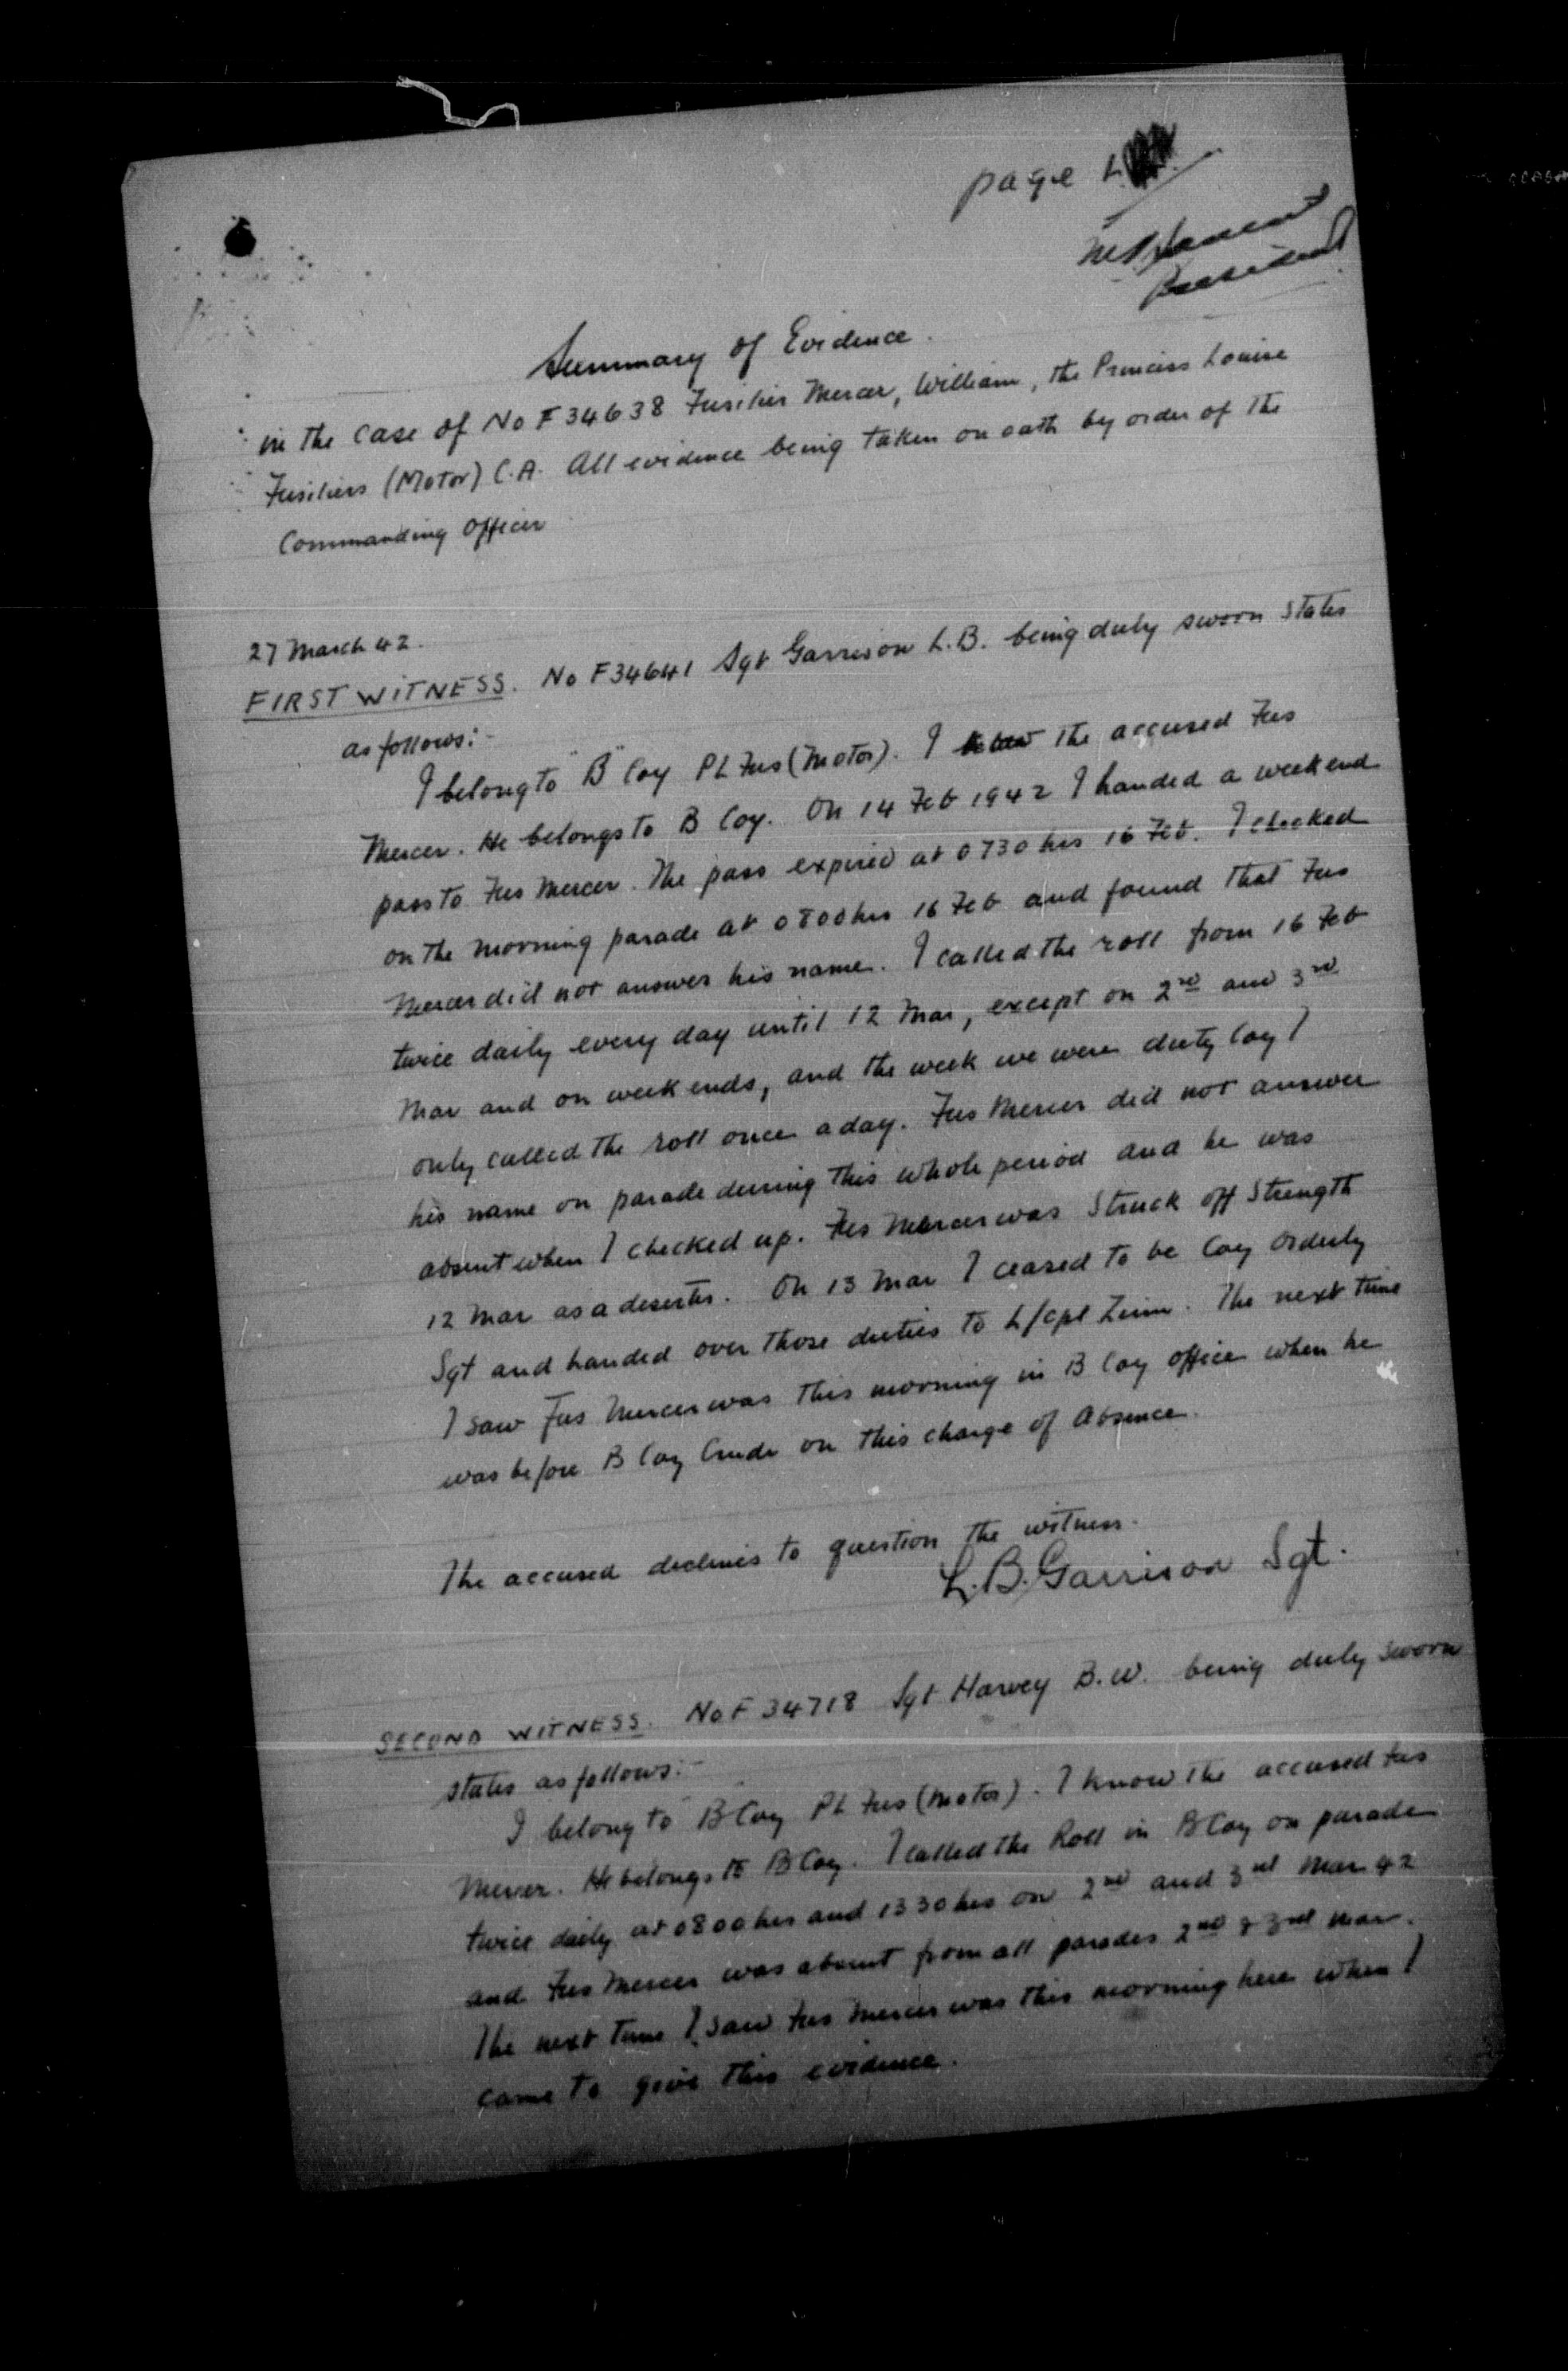 page
President
Summary of Evidence.
in the case of No F 34638 Fusilier Mercer, William, the Princess Louise
Fusiliers (Motor) C.A. All evidence being taken on oath by order of the
Commanding Officer
27 March 42.
FIRST WITNESS. No F34641 Sgt Garrison L.B. being duly sworn states
as follows:-
I belong to "B" Coy PL Fus (Motor). I know the accused Fus
Mercer. He belongs to B Coy. On 14 Feb 1942 I handed a weekend
pass to Fus Mercer. The pass expired at 0730 hrs 16 Feb. I checked
on the morning parade at 0800 hrs 16 Feb and found that Fus
Mercer did not answer his name. I called the roll from 16 Feb
twice daily every day until 12 Mar, except on 2nd and 3rd
Mar and on week ends, and the week we were duty Coy I
only called the roll once a day. Fus Mercer did not answer
his name on parade during this whole period and he was
absent when I checked up. Fus Mercer was Struck off Strength
12 Mar as a deserter. On 13 Mar I ceased to be Coy Orderly
Sgt and handed over those duties to L/Cpl Zinn. The next time
I saw Fus Mercer was this morning in B Coy office when he
was before B Coy Cmdr on this charge of Absence.
The accused declines to question the witness.
L.B. Garrison Sgt.
SECOND WITNESS. No F 34718 Sgt Harvey B.W. being duly sworn
states as follows:-
I belong to B Coy PL Fus (Motor). I know the accused Fus
Mercer. He belongs to B Coy. I called the Roll in B Coy on parade
twice daily at 0800 hrs and 1330 hrs on 2nd and 3rd Mar 42
and Fus Mercer was absent from all parades 2nd & 3rd Mar.
The next time I saw Fus Mercer was this morning here when I
came to give this evidence.